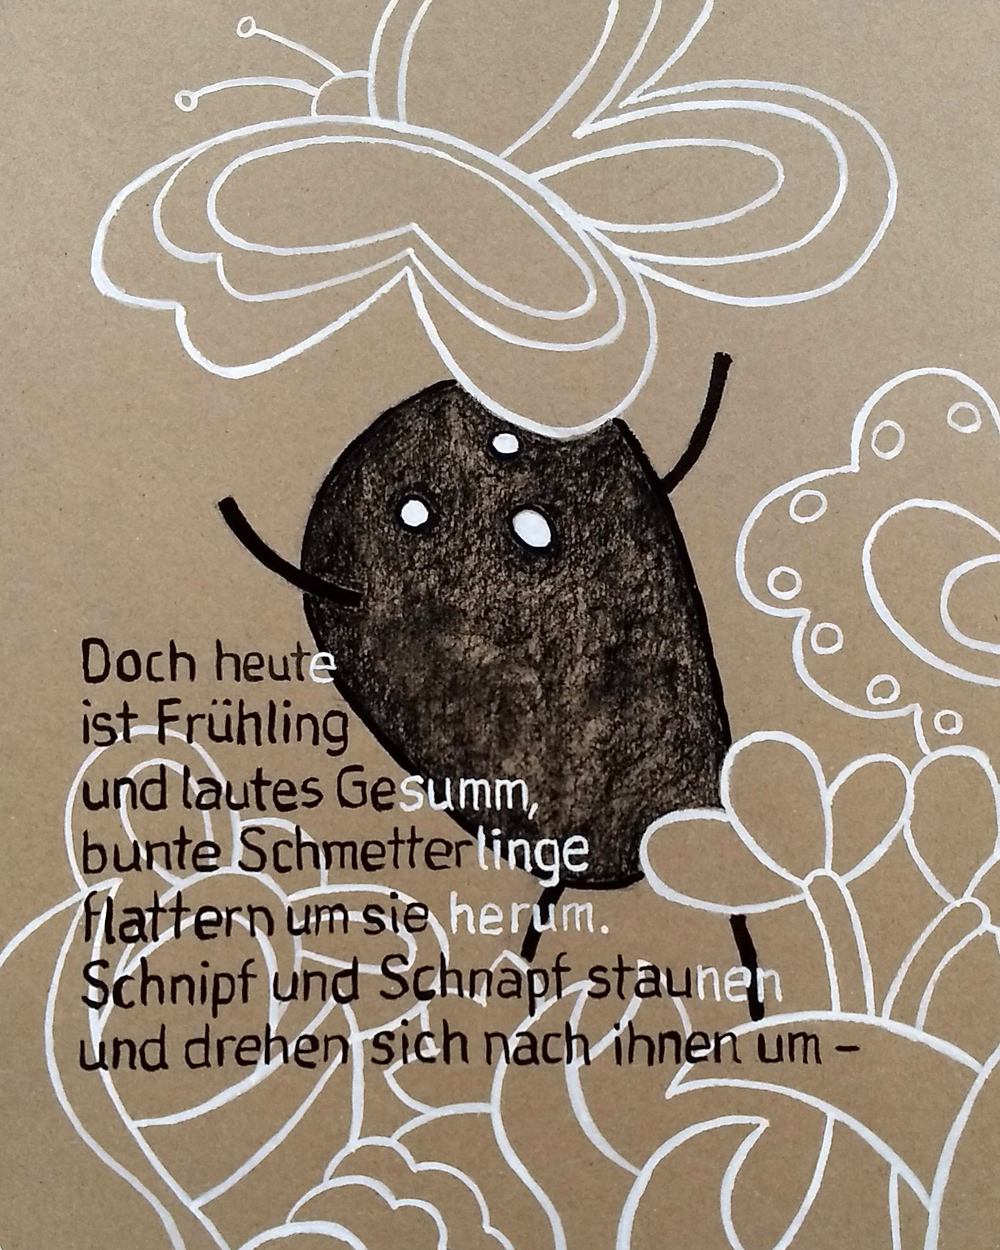 Doch heute
ist Frühling
und lautes Gesumm,
bunte Schmetterlinge
flattern um sie herum.
Schnipf und Schnapf staunen
und drehen sich nach ihnen um –